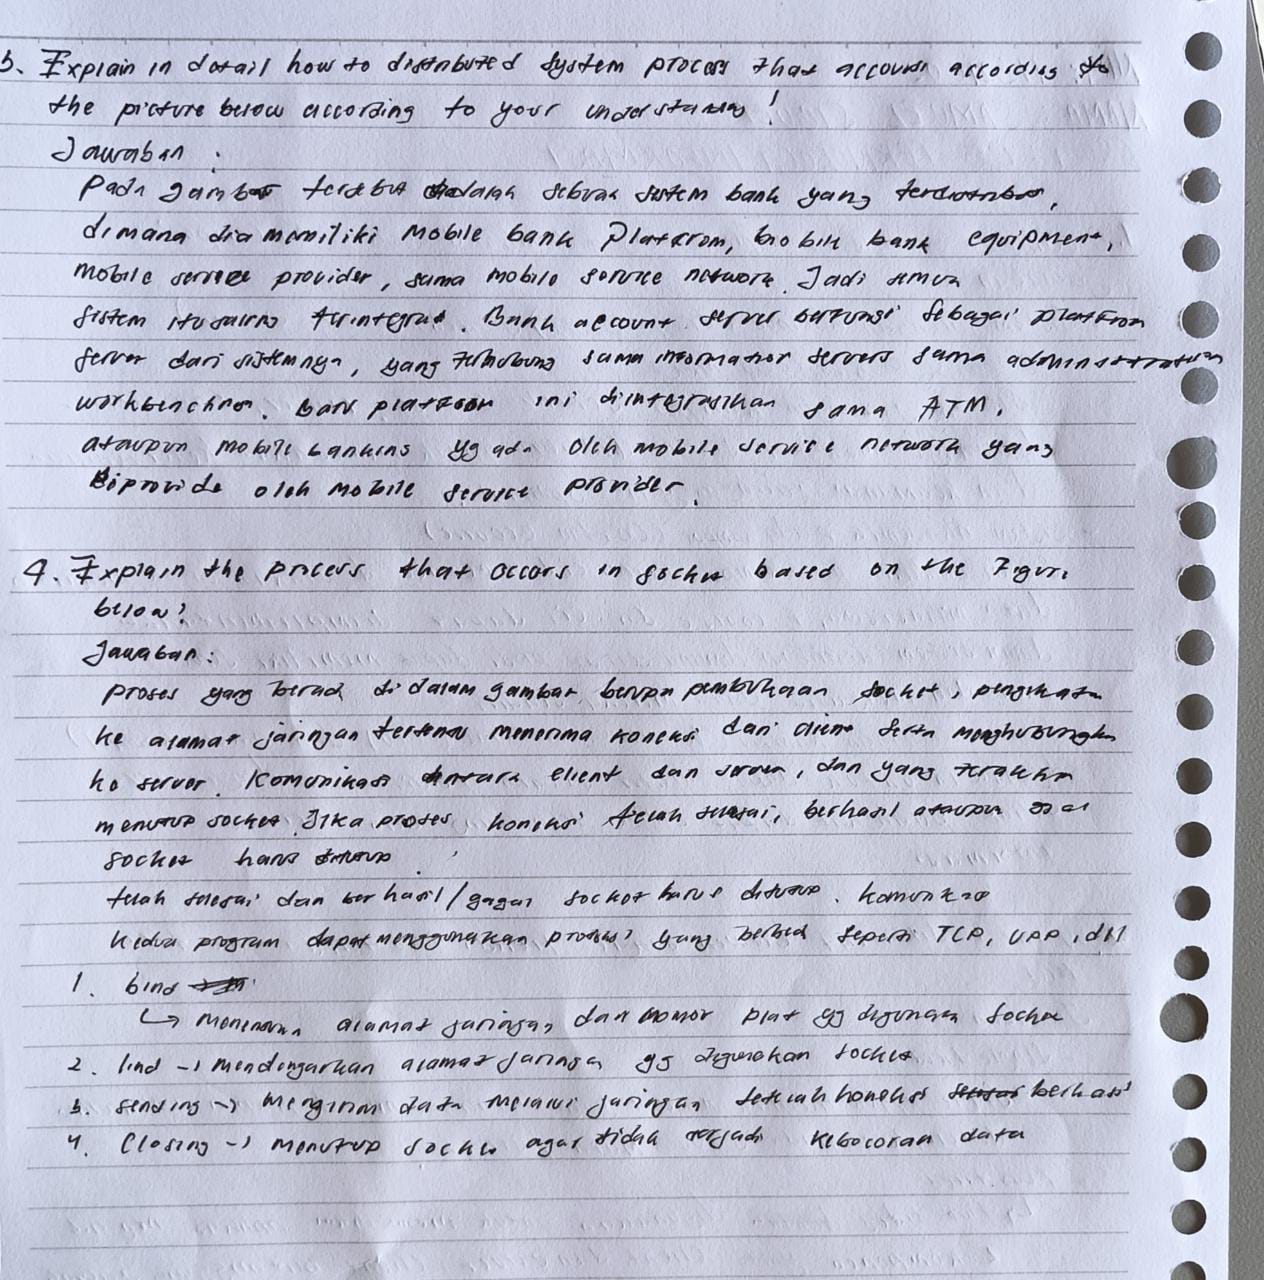 3. Explain in detail how to distributed system process that accours according to
the picture below according to your understanding!
Jawaban :
Pada gambar tersebut adalah sebuah sistem bank yang terdistribusi,
dimana dia memiliki Mobile bank Platform, mobile bank equipment,
mobile service provider, sama mobile service network. Jadi semua
sistem itu saling terintegrasi. Bank account server berfungsi sebagai platform
server dari sistemnya, yang terhubung sama information servers sama administration
workbenches. Bank platform ini diintegrasikan sama ATM,
ataupun mobile banking yg ada oleh mobile service network yang
diprovide oleh mobile service provider.
4. Explain the process that occors in socket based on the Figure
below?
Jawaban :
proses yang berada di dalam gambar berupa pembukaan socket, pengikatan
ke alamat jaringan tertentu menerima koneksi dari client serta menghubungkan
ke server. Komunikasi antara client dan server, dan yang terakhir
menutup socket. Jika proses koneksi telah selesai, berhasil ataupun gagal
socket harus ditutup
telah selesai dan berhasil/gagal socket harus ditutup. Komunikasi
kedua program dapat menggunakan protokol yang berbeda seperti TCP, UDP, dll
1. bind
↳ menentukan alamat jaringan dan nomor plat yg digunakan socket
2. lind → mendengarkan alamat jaringan yg digunakan socket
3. sending → mengirim data melalui jaringan setelah koneksi berhasil
4. Closing → menutup socket agar tidak terjadi kebocoran data